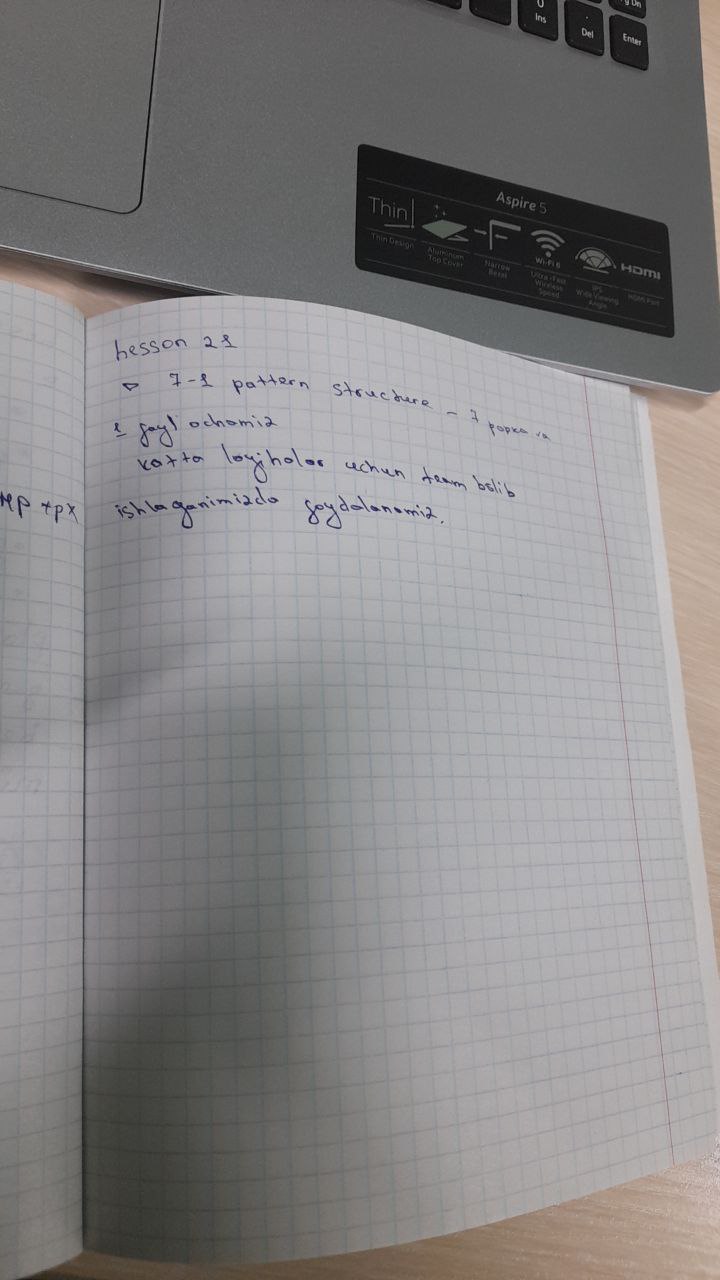 Ins
Del
Enter
Aspire 5
Thin
Thin Design
Aluminum
Top Cover
Narrow
Bezel
Wi-Fi 6
Ultra-Fast
Wireless
Speed
IPS
Wide Viewing
Angle
HDMI
HDMI Port
Lesson 21
7-1 pattern structure - 7 papka va
1 fayl ochamiz
katta loyihalar uchun team bolib
ishlaganimizda foydalanamiz.